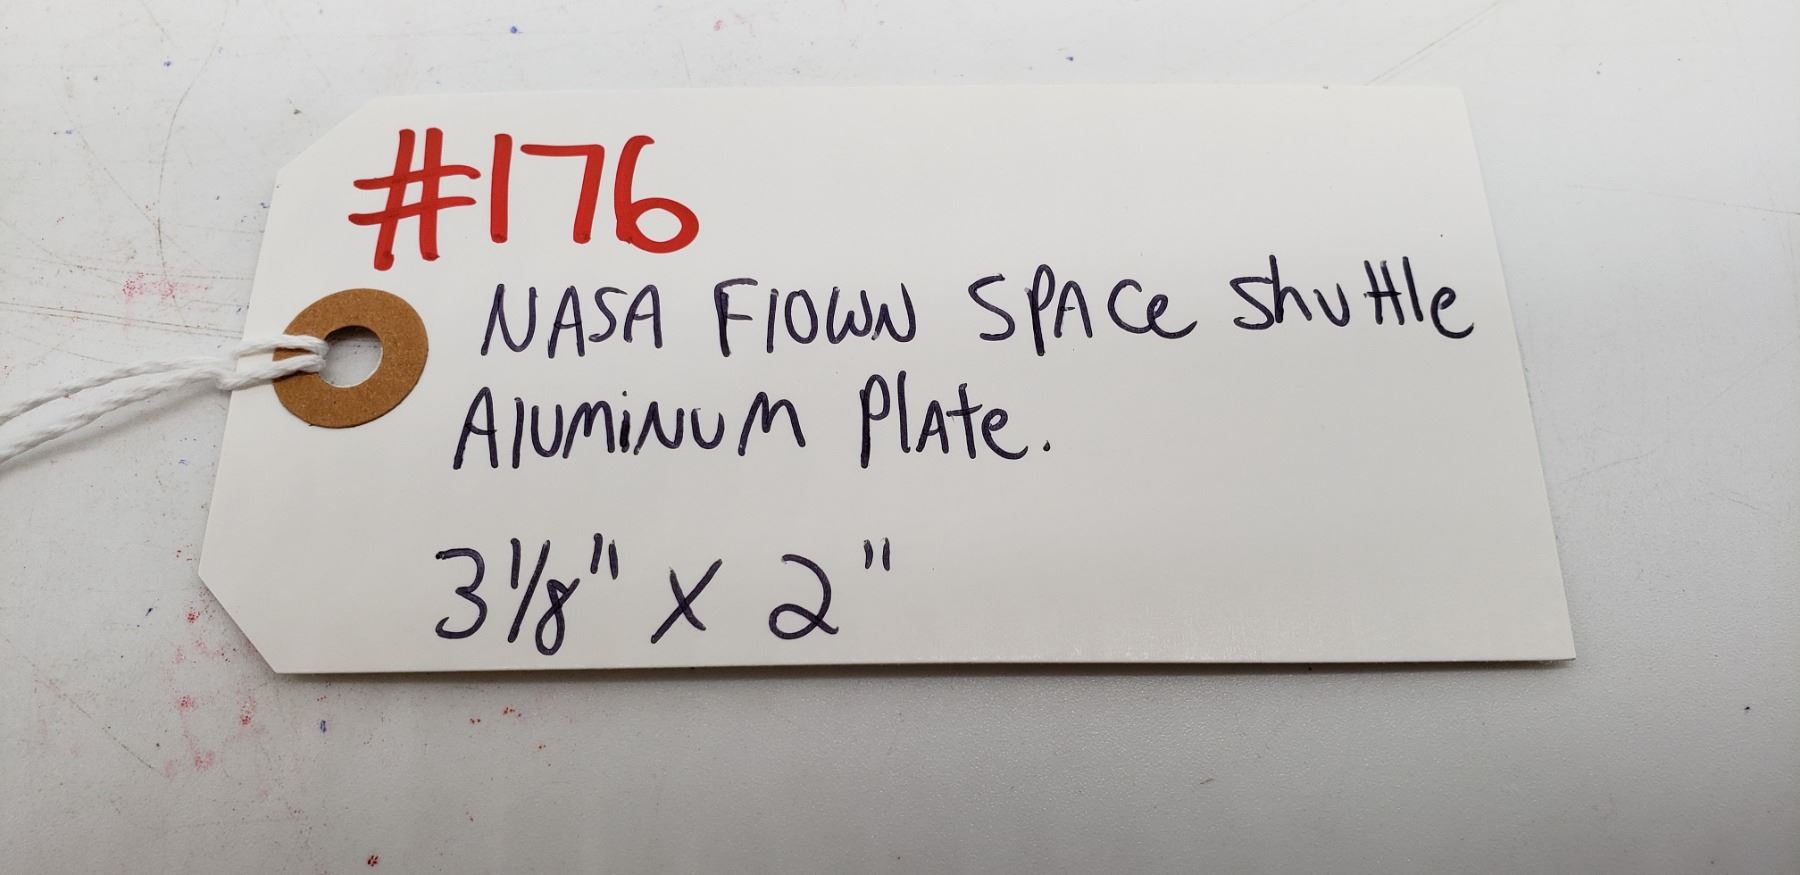 #176
NASA Flown Space Shuttle
Aluminum Plate.
3 1/8" x 2"